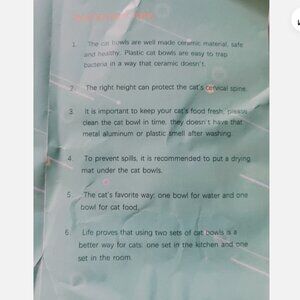 1. The cat bowls are well made ceramic material, safe
and healthy. Plastic cat bowls are easy to trap
bacteria in a way that ceramic doesn't.
2. The right height can protect the cat's cervical spine.
3. It is important to keep your cat's food fresh, please
clean the cat bowl in time. they doesn't have that
metal aluminum or plastic smell after washing.
4. To prevent spills, it is recommended to put a drying
mat under the cat bowls.
5. The cat's favorite way: one bowl for water and one
bowl for cat food.
6. Life proves that using two sets of cat bowls is a
better way for cats: one set in the kitchen and one
set in the room.